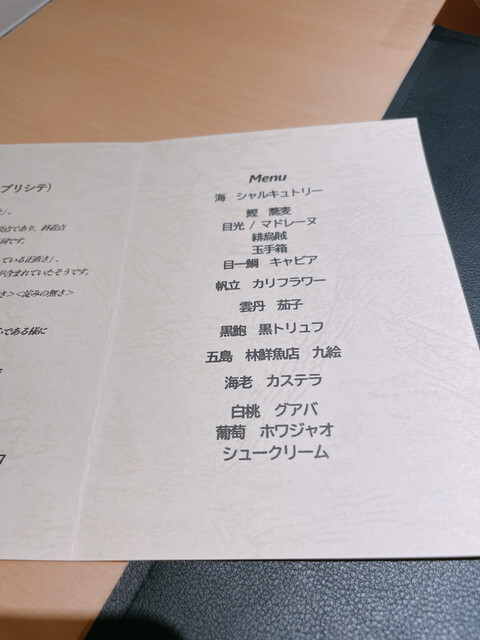 ブリシテ)
である様に
<淀みの無さ>
Menu
海 シャルキュトリー
鰹 蕎麦
目光 / マドレーヌ
緋烏賊
玉手箱
目一鯛 キャビア
帆立 カリフラワー
雲丹 茄子
黒鮑 黒トリュフ
五島 林鮮魚店 九絵
海老 カステラ
白桃 グアバ
葡萄 ホワジャオ
シュークリーム